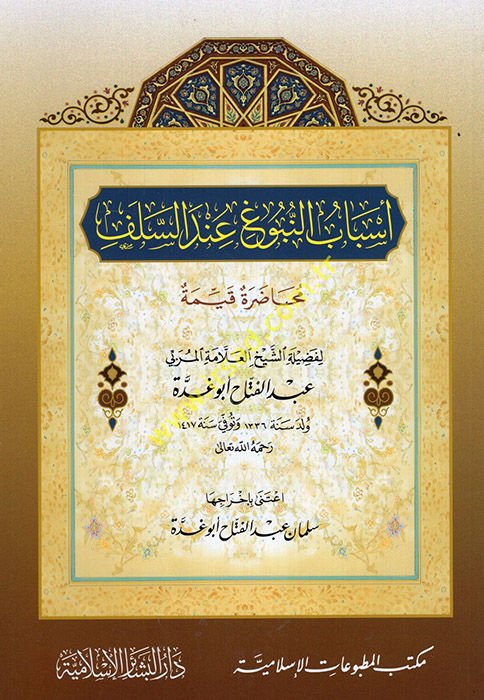 أسْبَابُ النُّبُوغِ عِنْدَ السَّلَفِ
مُحَاضَرَةٌ قَيِّمَةٌ
لِفَضِيلَةِ الشَّيْخِ العَلَّامَةِ المُرَبِّي
عبد الفتاح أبو غدّة
وُلد سَنة ١٣٣٦ وَتُوفّي سَنة ١٤١٧
رَحمَهُ الله تعالى
اعْتَنى بِإِخْرَاجِهَا
سلمان عبد الفتاح أبو غدّة
مكتب المطبوعات الإسلاميّة
دَارُ البَشَائِرِ الإِسْلَامِيَّة